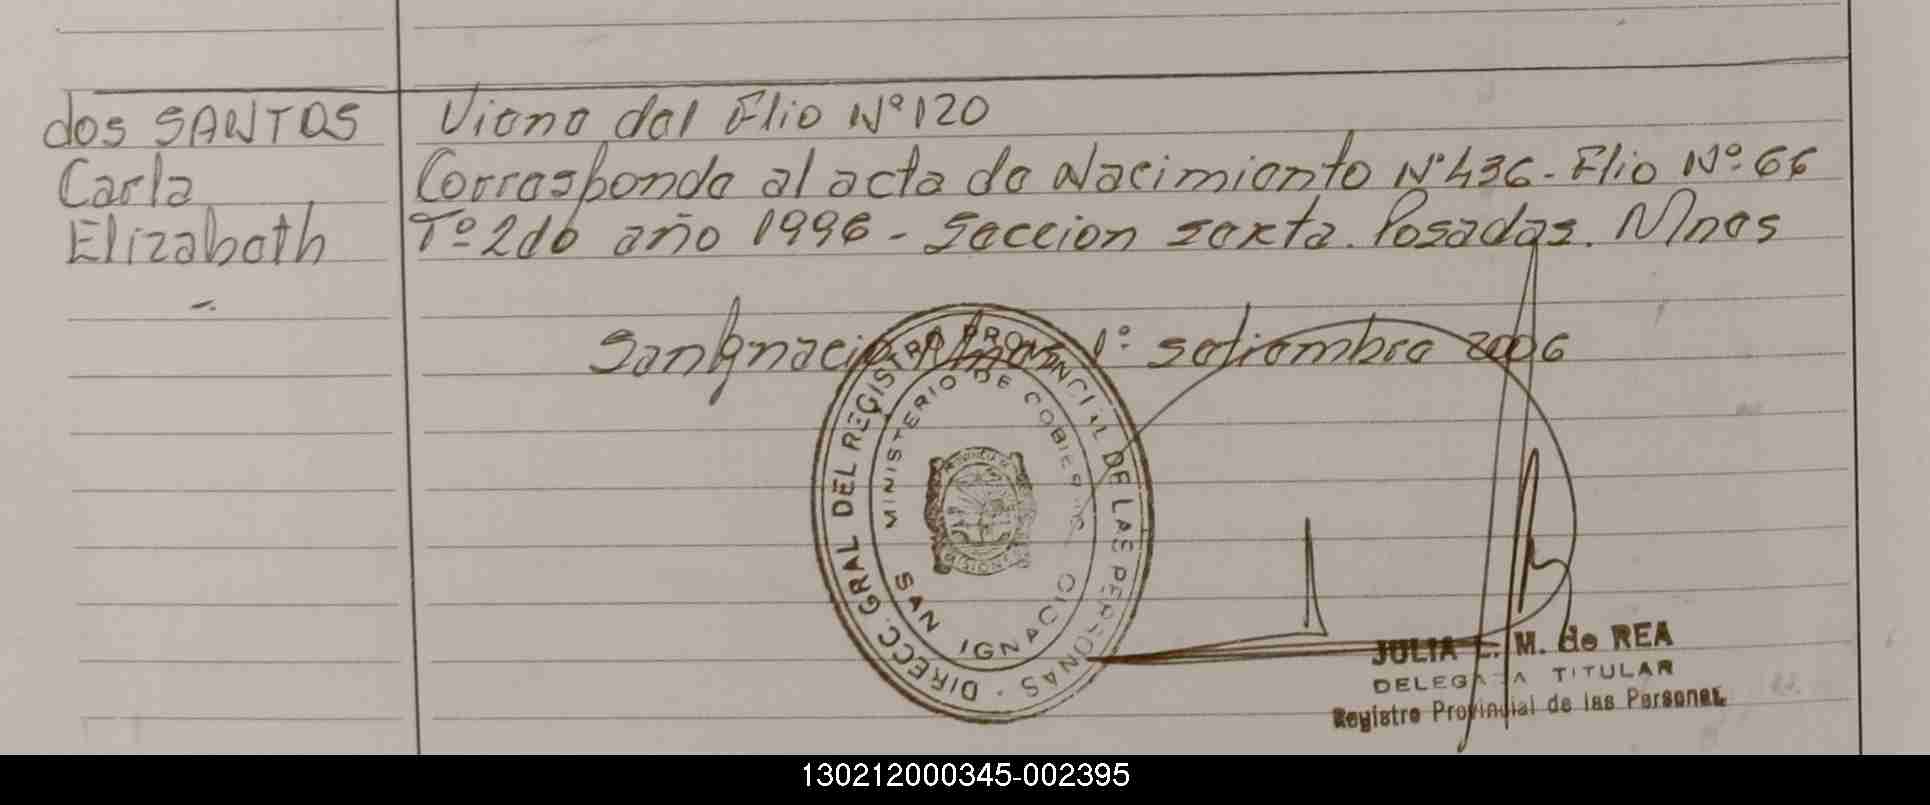 dos SANTOS
Carla
Elizabeth
-.
Viene del Flio Nº 120
Corresponde al acta de Nacimiento Nº 436 - Flio Nº 66
Tº 2do año 1996 - Seccion sexta. Posadas. Mnes
San Ignacio Mnes 1º setiembre 2006
DIRECC. GRAL DEL REGISTRO PROVINCIAL DE LAS PERSONAS
MINISTERIO DE GOBIERNO
SAN IGNACIO
PROVINCIA DE
MISIONES
JULIA E. M. de REA
DELEGADA TITULAR
Registro Provincial de las Personas
130212000345-002395